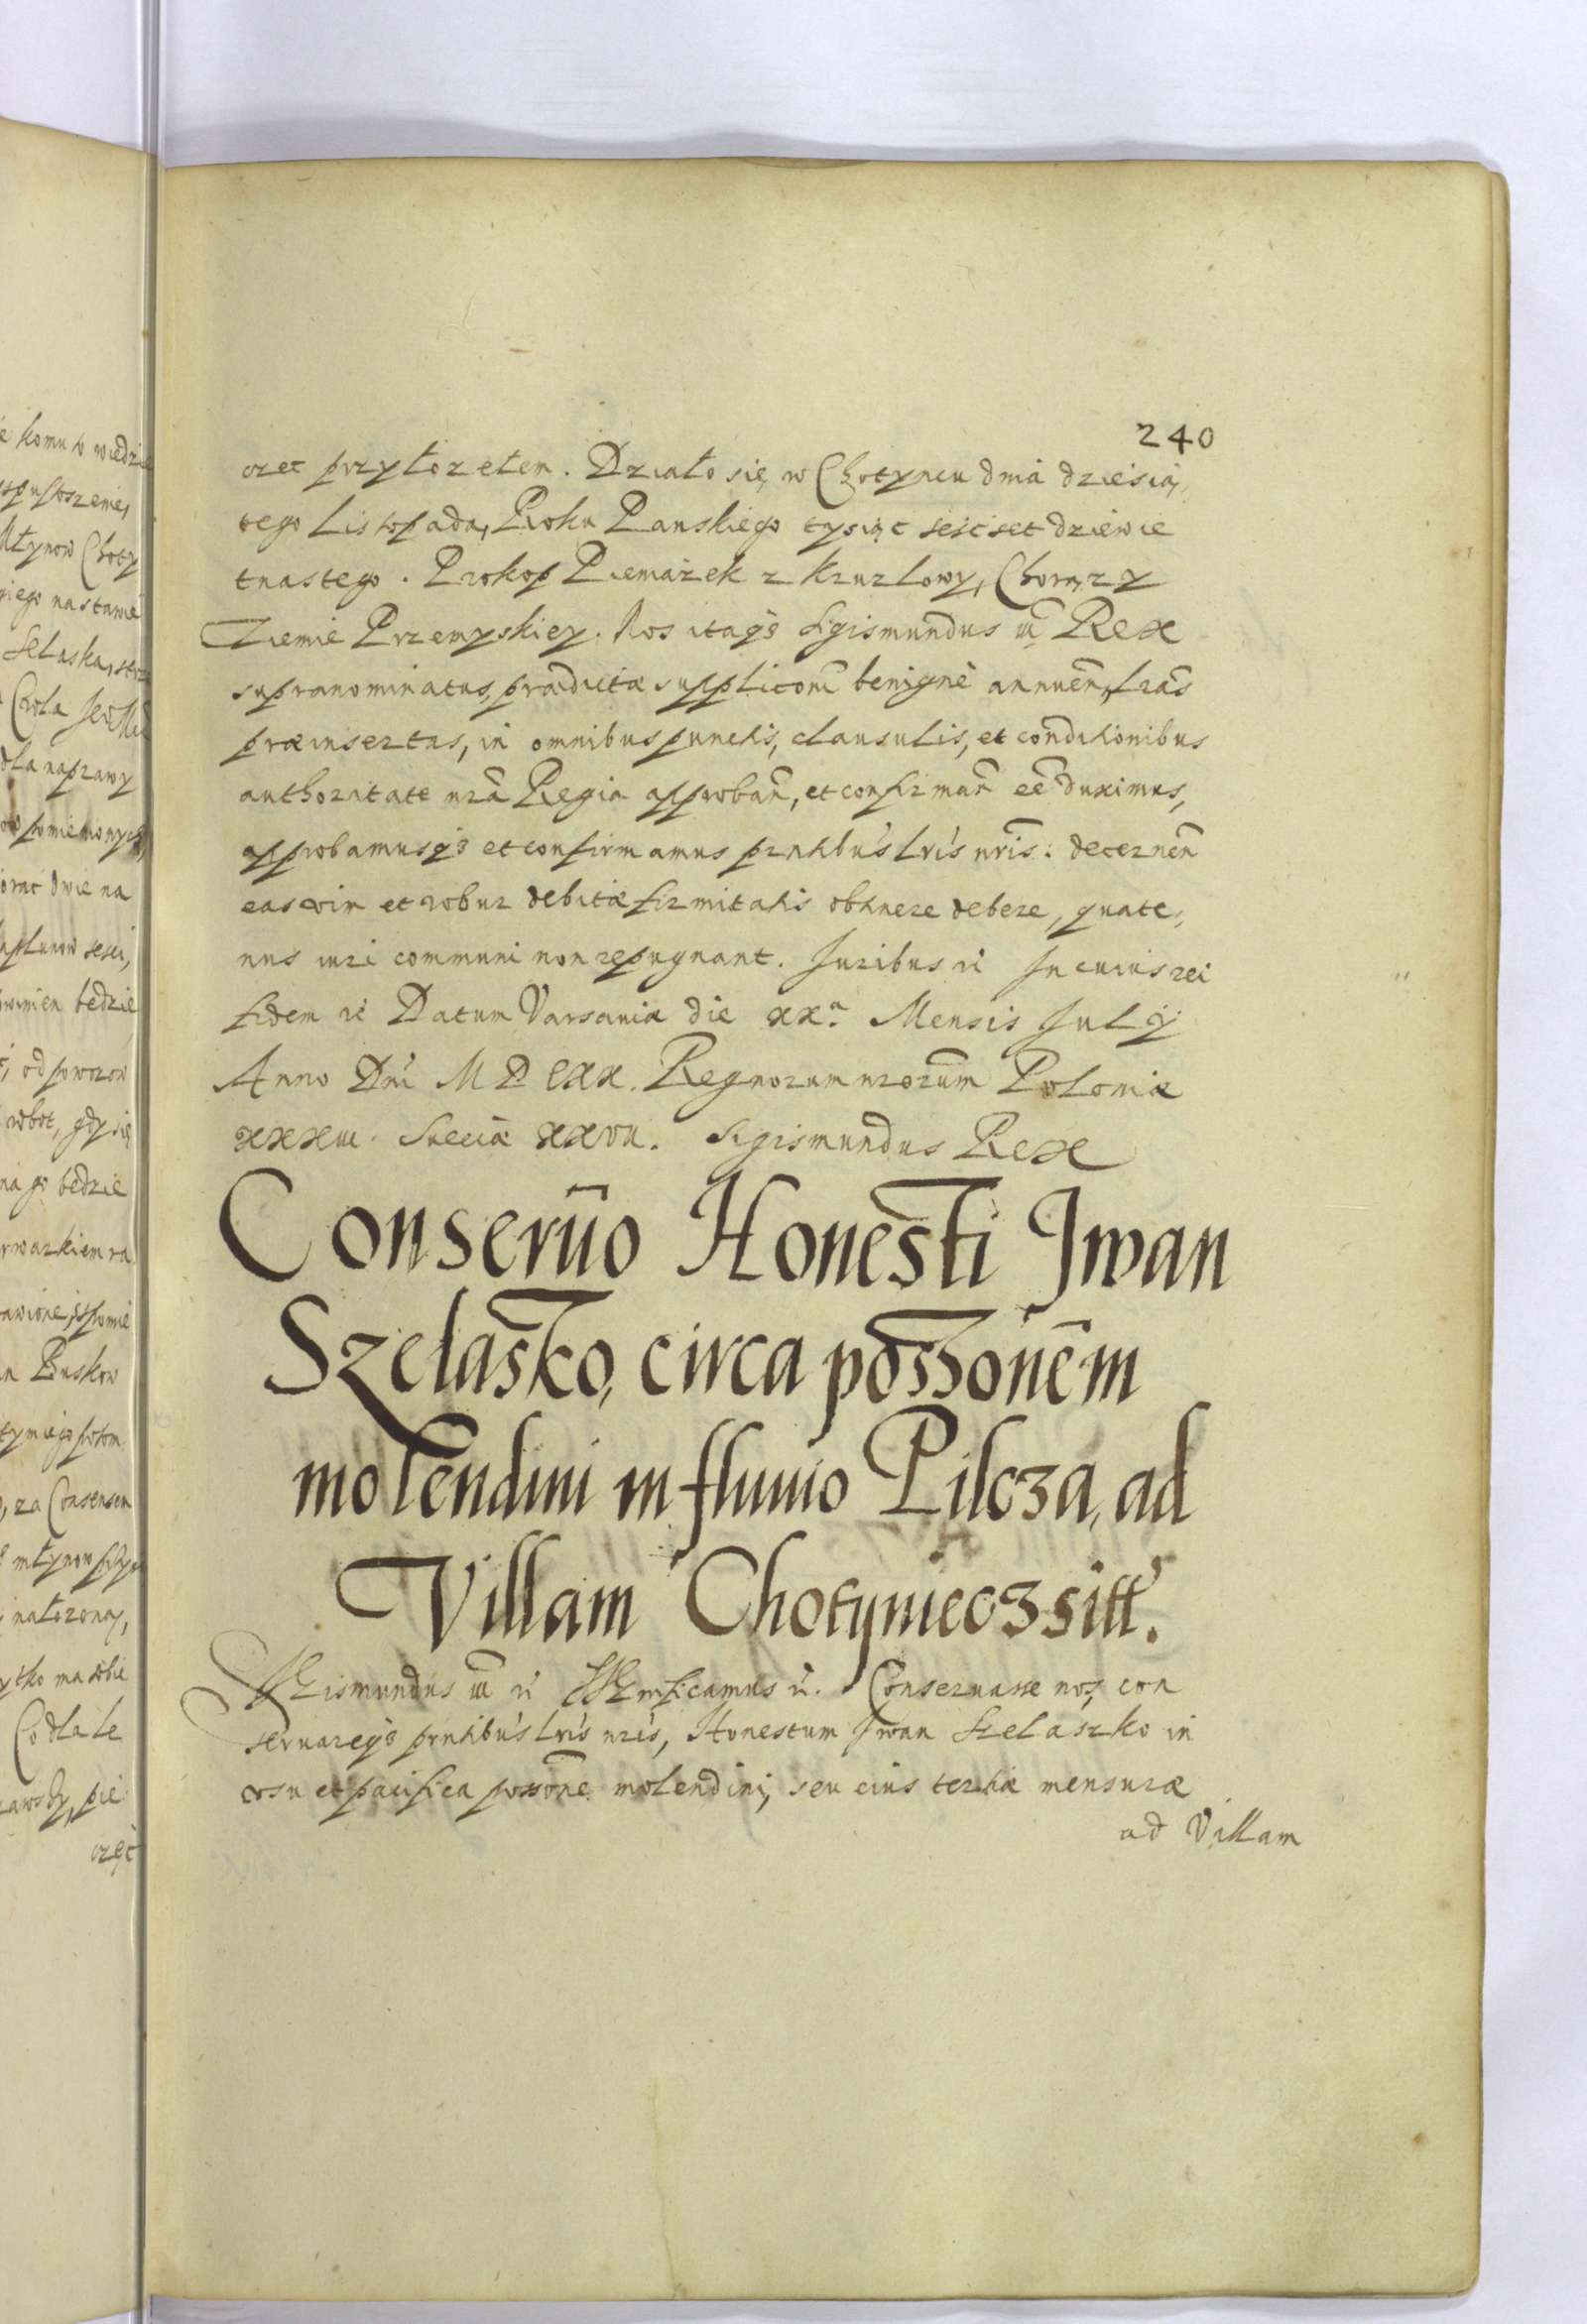 240
częc przyłozełem. Działo się w Chotyncu dnia dziesią,
tego Listopada, Roku Panskiego tysiąc sesćset dziewie
tnastego. Prokop Pieniążek z Kruzlowy, Chorązy
Ziemie Przemyskiey. Nos itaqȝ Sigismundus iii Rex
supranominatus, prædictæ suppliconi benigne annuen, lras
præinsertas, in omnibus punctis, clausulis, et conditionibus
authoritate nra Regia approban, et confirman ee duximus,
approbamusqȝ et confirmamus pntibus lris nris: decernen
eas vim et robur debitæ firmitatis obtinere debere, quate,
nus iuri communi non repugnant. Juribus rc In cuius rei
fidem rc Datum Varsaviæ die xx.a Mensis Julij
Anno Dni M D CXX. Regnorum nrorum Poloniæ
xxxiii. Sueciæ xxvii. Sigismundus Rex
Conseruo Honesti Jwan
Szelasko, circa possionem
molendini in fluuio Pilcza, ad
Villam Chotyniecz sitt.
Sigismundus iii rc Significamus rc. Conseruasse nos, con
seruareqȝ pntibus lris nris, Honestum Jwan Szelaszko in
vsu et pacifica possone molendini, seu eius tertiæ mensuræ
ad Villam
e komu to wiedzie
spustoszenie,
Młynow Choty
na stawie
Selaska,
dla naprawy
dwie na
bedzie
od powozow
robot, gdy się
na go bedzie
za Consensem
młynow
nałozona,
Co dla le
pie
częć